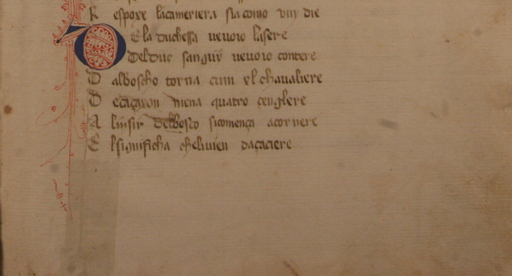 R espoxe lacameriera sia como vuy die
D E la duchessa ve voio lasere
D el duc sanguin ve voio contere
D alboscho torna cum el chavaliere
D e caçaxon mena quatro çenglere
A l insir del bosco si comença a cornere
E l significha che li vien da caciere